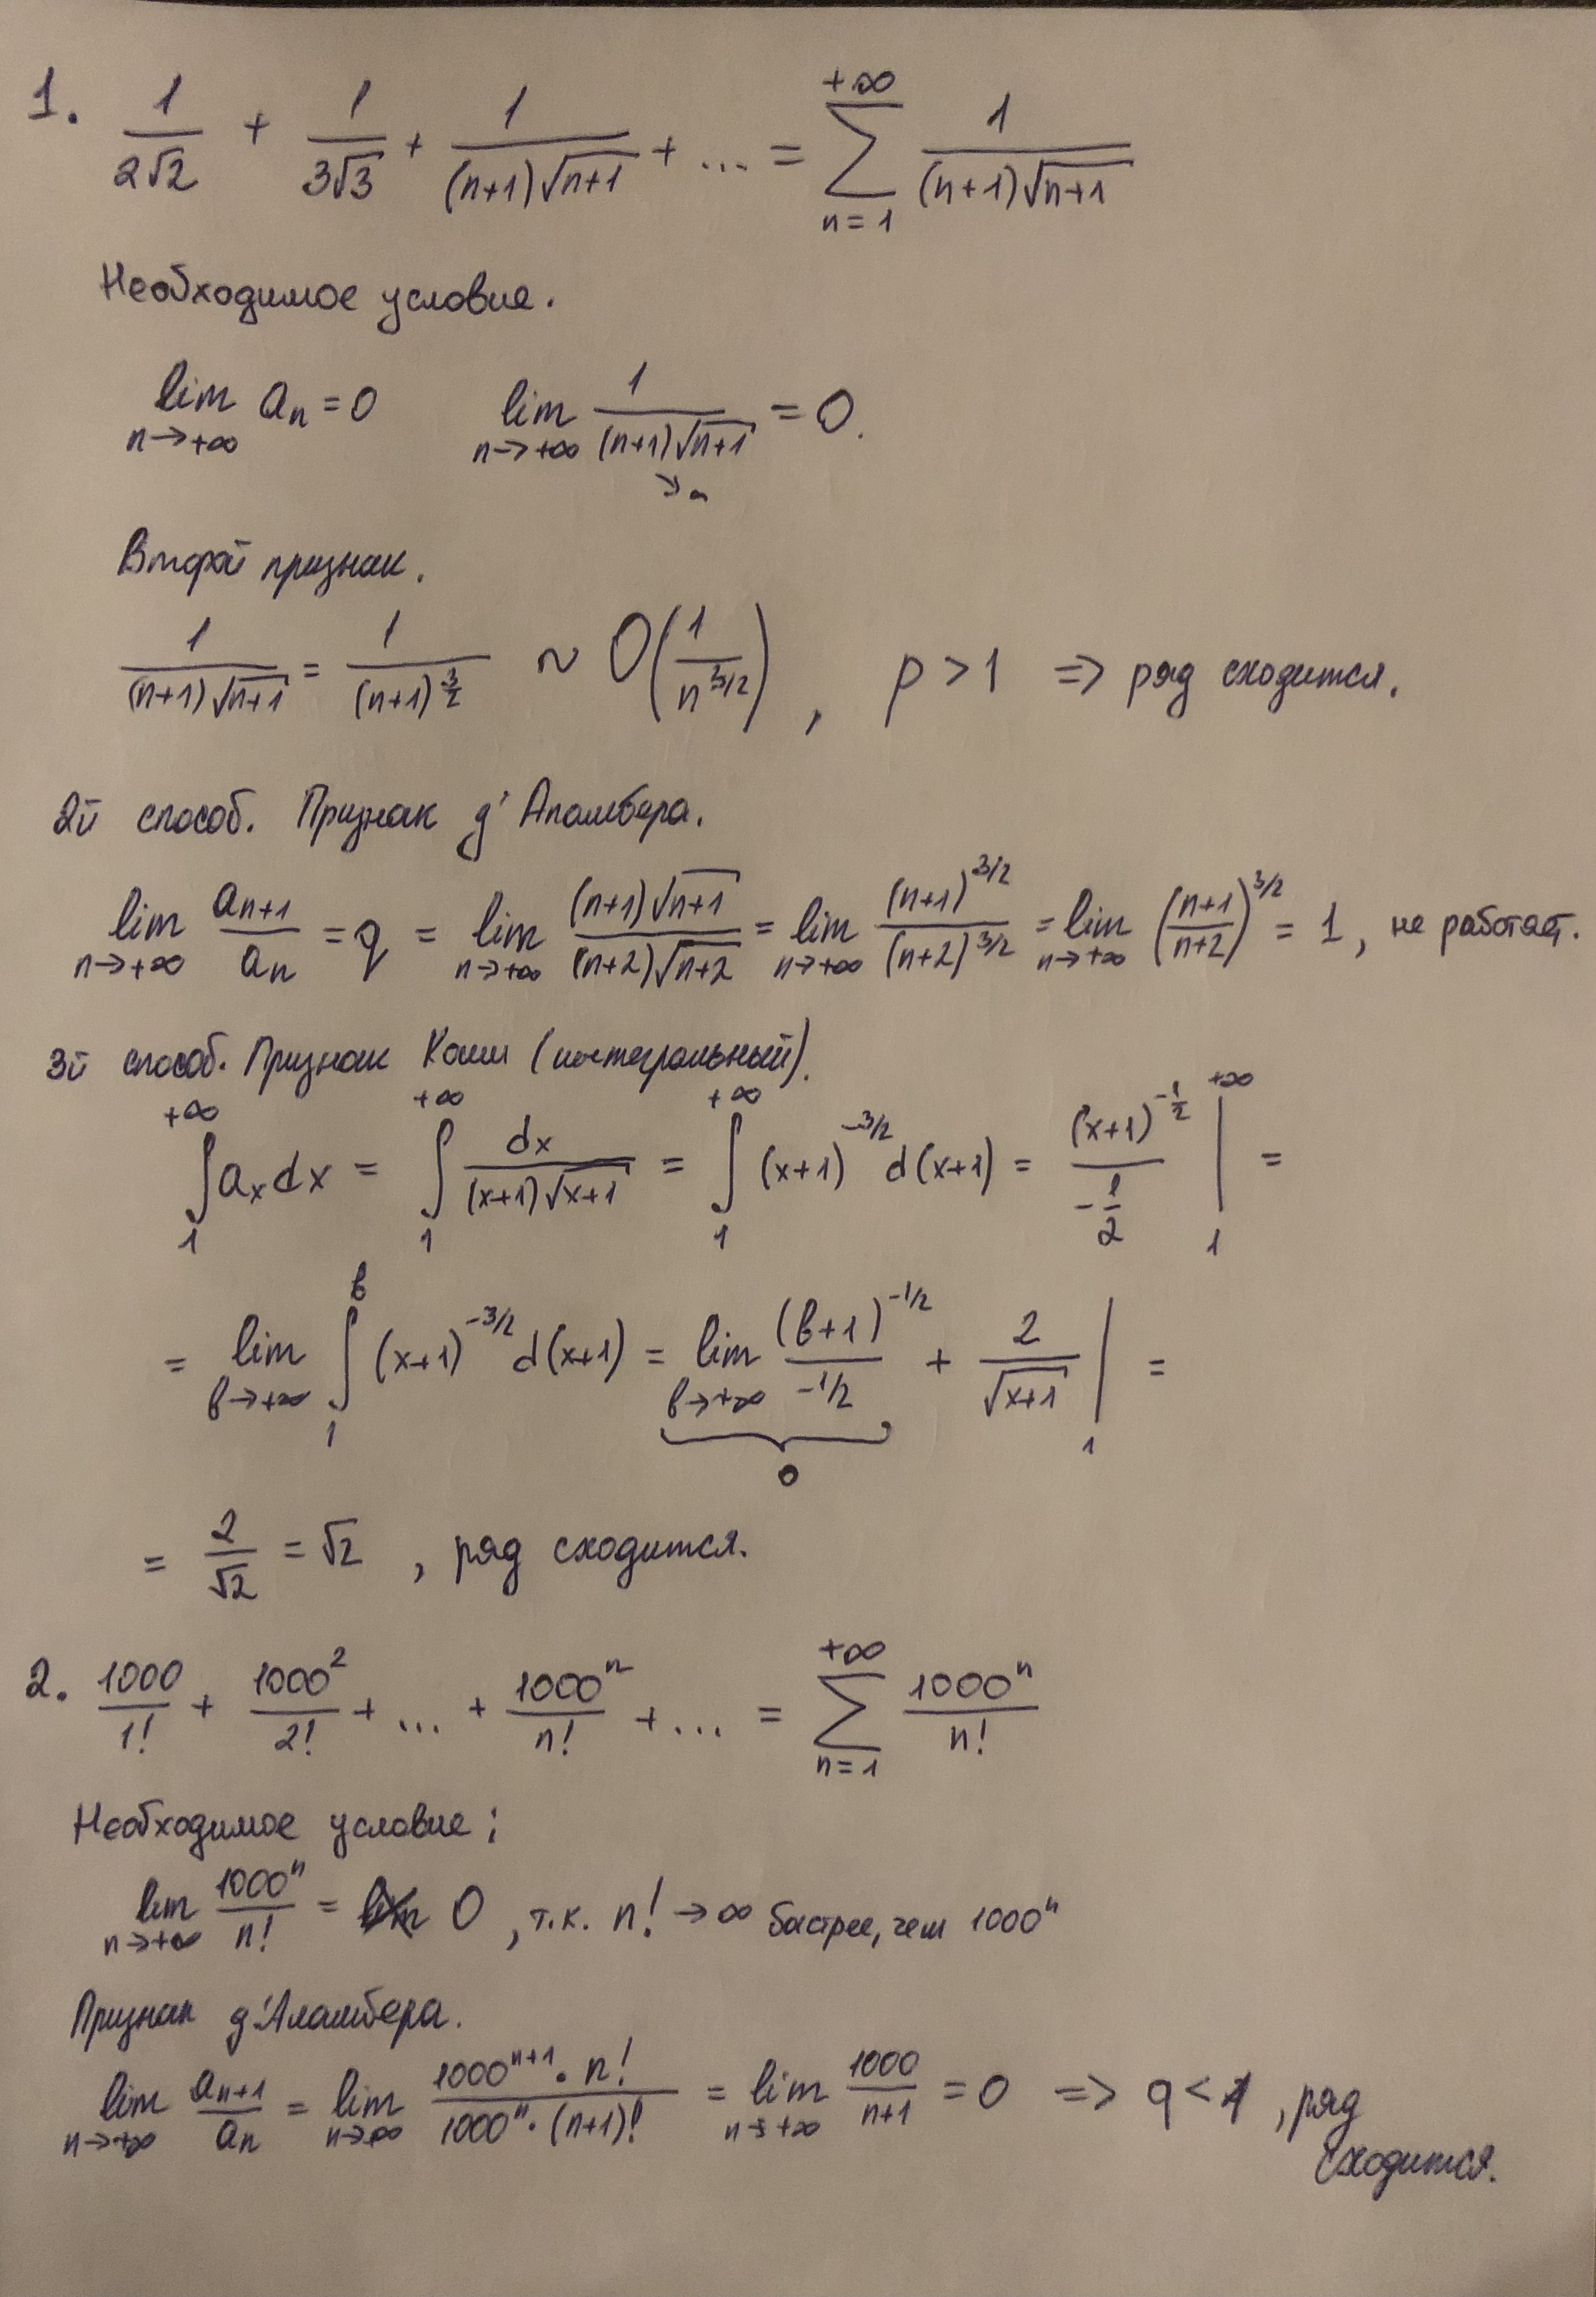 1. 1/(2√2) + 1/(3√3) + 1/((n+1)√(n+1)) + ... = ∑_{n=1}^{+∞} 1/((n+1)√(n+1))
Необходимое условие.
lim_{n→+∞} aₙ = 0   lim_{n→+∞} 1/((n+1)√(n+1)) = 0.
Второй признак.
1/((n+1)√(n+1)) = 1/(n+1)^{3/2} ~ O(1/n^{3/2}), p > 1 => ряд сходится.
2й способ. Признак д'Аламбера.
lim_{n→+∞} a_{n+1}/a_n = q = lim_{n→+∞} ((n+1)√(n+1))/((n+2)√(n+2)) = lim_{n→+∞} (n+1)^{3/2}/(n+2)^{3/2} = lim_{n→+∞} ((n+1)/(n+2))^{3/2} = 1, не работает.
3й способ. Признак Коши (интегральный).
∫_1^{+∞} aₓdx = ∫_1^{+∞} dx/((x+1)√(x+1)) = ∫_1^{+∞} (x+1)^{-3/2} d(x+1) = (x+1)^{-1/2}/(-1/2) |_1^{+∞} =
= lim_{b→+∞} ∫_1^b (x+1)^{-3/2} d(x+1) = lim_{b→+∞} (b+1)^{-1/2}/(-1/2) + 2/√(x+1) |_1 =
0
= 2/√2 = √2, ряд сходится.
2. 1000/1! + 1000²/2! + ... + 1000ⁿ/n! + ... = ∑_{n=1}^{+∞} 1000ⁿ/n!
Необходимое условие:
lim_{n→+∞} 1000ⁿ/n! = 0, т.к. n! → ∞ быстрее, чем 1000ⁿ
Признак д'Аламбера.
lim_{n→+∞} a_{n+1}/a_n = lim_{n→∞} (1000^{n+1}·n!)/(1000ⁿ·(n+1)!) = lim_{n→+∞} 1000/(n+1) = 0 => q < 1, ряд
сходится.